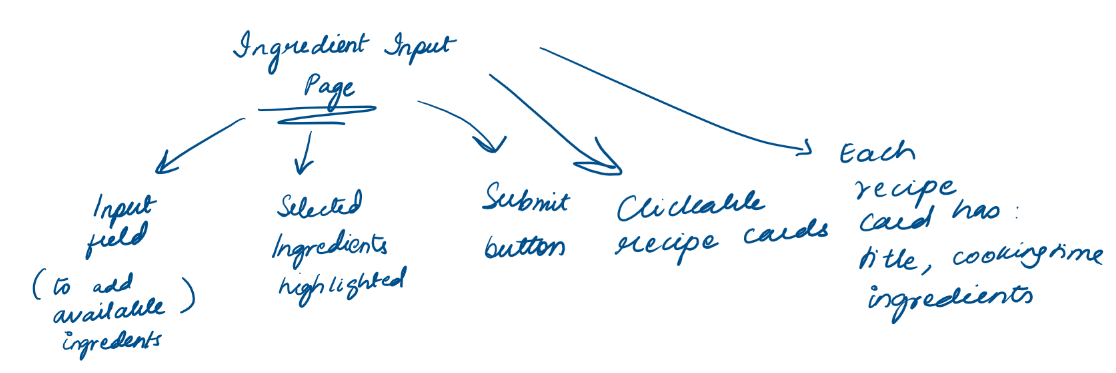 Ingredient Input
Page
Input
field
(to add
available)
ingredents
Selected
Ingredients
highlighted
Submit
button
Clickable
recipe cards
Each
recipe
card has:
title, cooking time
ingredients